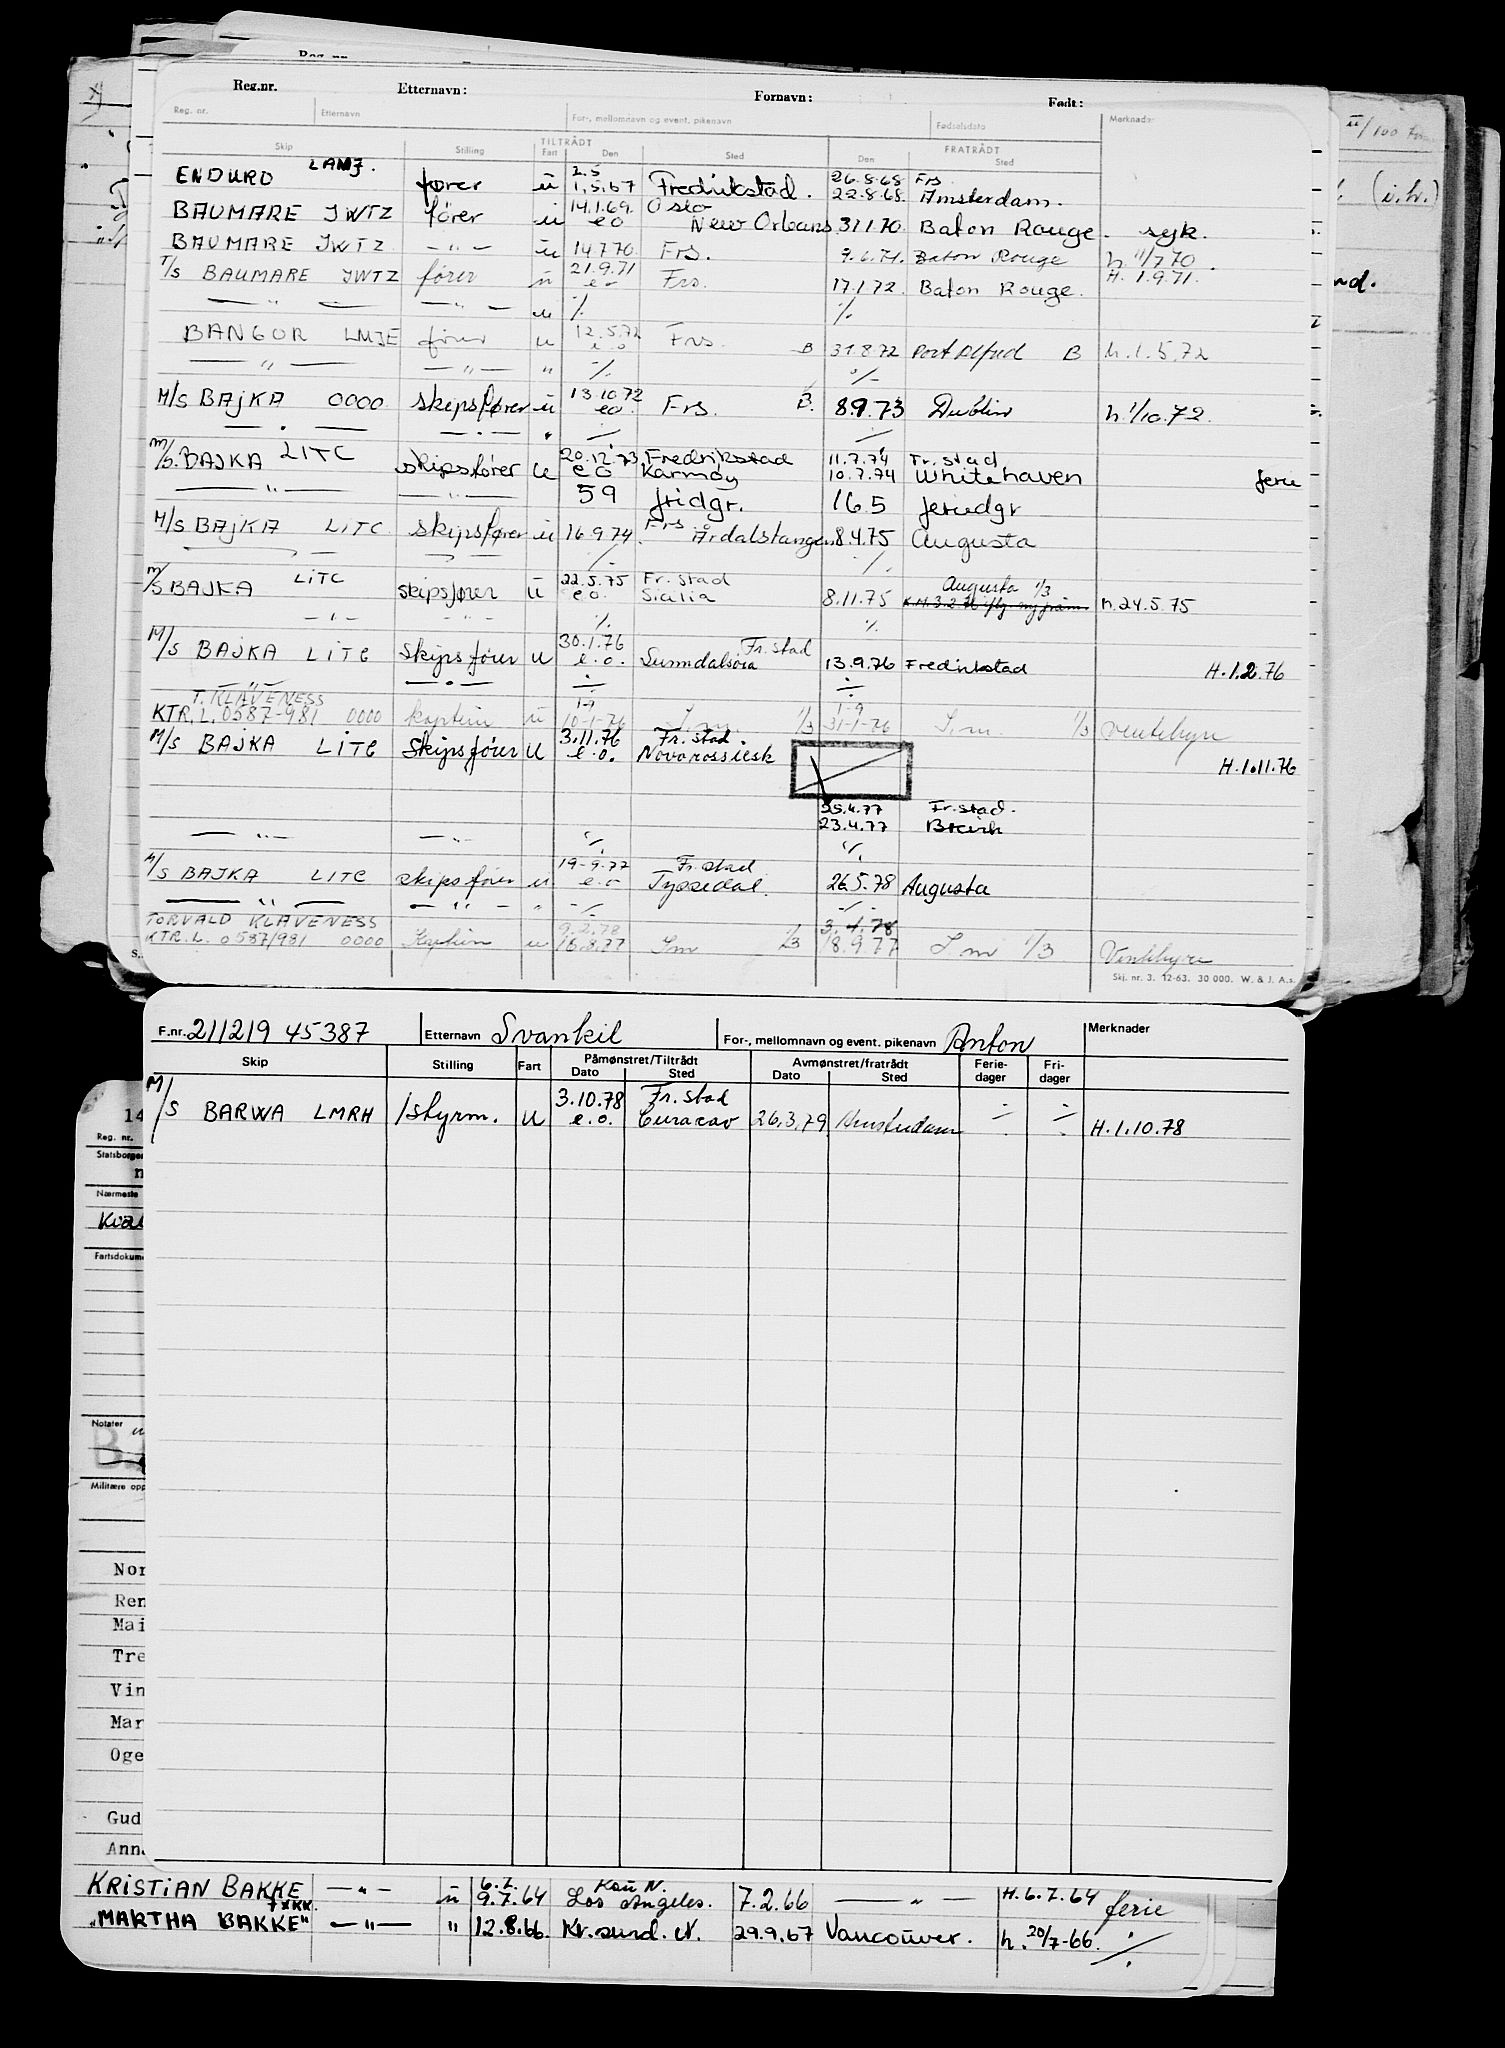 Reg.nr. Etternavn: Fornavn: Født:
Reg. nr. Etternavn For-, mellomnavn og event. pikenavn Fødselsdato Merknader
TILTRÅDT FRATRÅDT
Skip Stilling Fart Den Sted Den Sted
2.5 26.8.68 Frs
ENDURO fører ü 1.5.67 Fredrikstad. 22.8.68 Amsterdam.
14.1.69. Oslo
BAUMARE JWTZ fører ü eo New Orleans 31.1.70. Baton Rouge. syk.
BAUMARE JWTZ — " — ü 14.7.70 Frs. 9.6.71. Baton Rouge h. 11/7 70.
21.9.71
T/S BAUMARE JWTZ fører ü eo Frs. 17.1.72. Baton Rouge. H. 1.9.71.
— " — — " — u ./. ./.
12.5.72
BANGOR LMJE fører u e.o Frs. B 31.8.72 Port Alfred B h.1.5.72
— " — — " — " ./. ./.
13.10.72
M/S BAJKA 0000 skipsfører ü eo. Frs. B. 8.9.73 Dublin h. 1/10.72.
20.12.73 Fredrikstad 11.7.74 Fr.stad
M/S. BAJKA LITC skipsfører u eo Karmøy 10.7.74 Whitehaven ferie
— " — — " — 59 fridgr. 165 feriedgr
Frs
M/S BAJKA LITC skipsfører ü 16.9.74. Årdalstangen 8.4.75 Augusta
./. ./.
22.5.75 Fr.stad Augusta 1/3
M/S BAJKA LITC skipsfører ü e.o. Sicilia 8.11.75 h.24.5.75
— " — — " — ./. ./.
30.1.76 Fr.stad
M/S BAJKA LITC Skipsfører u e.o. Sunndalsøra 13.9.76 Fredrikstad H.1.2.76
— " — — " — ./. ./.
T. KLAVENESS 1-9 1-9
KTR.L. 0587-981 0000 kaptein ü 10-1-76 1/3 31-1-76 1/3 Ventehyre
3.11.76 Fr.stad.
M/S BAJKA LITC Skipsfører u e.o. Novorossiesk H.1.11.76
25.4.77 Fr.stad.
23.4.77
— " — — " — ./. ./.
19-9-77 Fr.stad
M/S BAJKA LITC skipsfører u e.o Tyssedal. 26.5.78 Augusta
— " — — " — " ./. ./.
TORVALD KLAVENESS 9.2.78 3.4.78
KTR.L. 0587/981 0000 Kaptein u 16.8.77 1/3 18.9.77 1/3 Ventehyre
Skj. nr. 3. 12-63. 30 000. W. & J. A.s.
F.nr. 211219 45387 Etternavn Svankil For-, mellomnavn og event. pikenavn Anton Merknader
Skip Stilling Fart Påmønstret/Tiltrådt Avmønstret/fratrådt Ferie- Fri-
Dato Sted Dato Sted dager dager
3.10.78 Fr.stad
M/S BARWA LMRH 1styrm. u e.o. Curacao 26.3.79 Amsterdam ./. ./. H.1.10.78
14
Reg. nr.
Nærmeste
Notater
Nor
Ren
Mai
Tre
Vin
Mar
Oge
Gud
Ann
6.7. N.
KRISTIAN BAKKE — " — ü 9.7.64 Los Angeles. 7.2.66 — " — H.6.7.64 ferie
"MARTHA BAKKE" — " — " 12.8.66. Kr.sund. N. 29.9.67 Vancoüver. h. 20/7-66. ./.